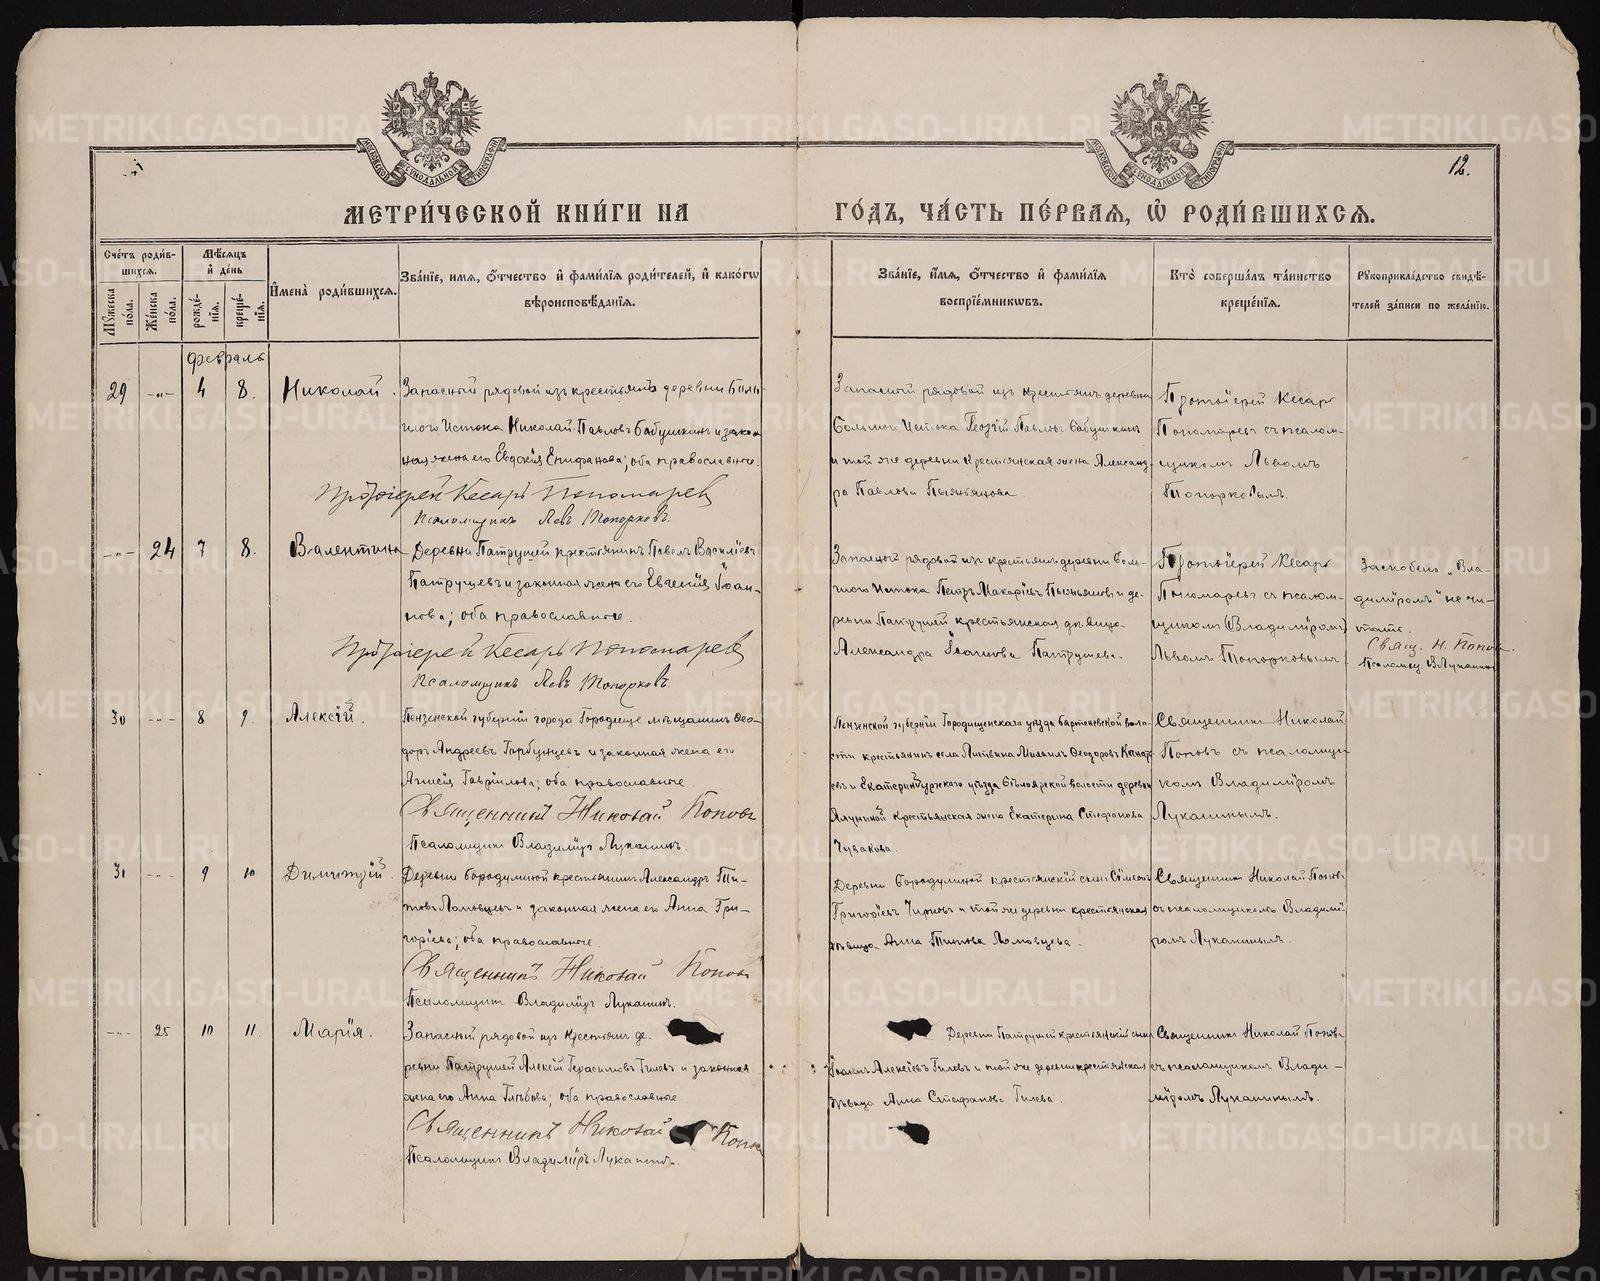 12.
МОСКОВСКОЙ СѴНОДАЛЬНОЙ ТИПОГРАФІИ
МОСКОВСКОЙ СѴНОДАЛЬНОЙ ТИПОГРАФІИ
МЕТРИ́ЧЕСКОЙ КНИ́ГИ НА
ГО́ДЪ, ЧА́СТЬ ПЕ́РВАЯ, Ѡ҆ РОДИ́ВШИХСЯ.
Сче́тъ роди́в-
шихсѧ.
Мѣ́сѧцъ
и҆ де́нь
И҆мена̀ роди́вшихсѧ.
Зва́нїе, имѧ, о҆́тчество и҆ фами́лїѧ роди́телей, и҆ како́гѡ
вѣроисповѣ́данїѧ.
Мꙋ́жеска
по́ла.
Же́нска
по́ла.
рожде́-
нїѧ.
креще́-
нїѧ.
Зва́нїе, и҆́мѧ, о҆́тчество и҆ фами́лїѧ
воспрїе́мникѡвъ.
Кто̀ соверша́лъ та́инство
креще́нїѧ.
Рꙋкоприкла́дство свидѣ́-
телей за́писи по жела́нїю.
Февраль
29 -"- 4 8. Николай.
Запасный рядовой изъ крестьянъ деревни Боль-
шого Истока Николай Павловъ Бабушкинъ и закон-
ная жена его Евдокія Епифанова; оба православные.
Протоіерей Кесарь Пономарев
Псаломщикъ Левъ Топорковъ.
Запасный рядовой изъ крестьянъ деревни
Больш. Истока Георгій Павловъ Бабушкинъ
и той же деревни крестьянская жена Александ-
ра Павлова Пьянкова.
Протоіерей Кесарь
Пономаревъ съ псалом-
щикомъ Львомъ
Топорковымъ.
-"- 24 7 8. Валентина
Деревни Патрушей крестьянинъ Павелъ Василіевъ
Патрушевъ и законная жена его Евгенія Іоан-
нова; оба православные.
Протоіерей Кесарь Пономарев
Псаломщикъ Левъ Топорковъ.
Запасный рядовой изъ крестьянъ деревни Боль-
шого Истока Петръ Макаріевъ и де-
ревни Патрушей крестьянская дѣвица
Александра Іоаннова Патрушева.
Протоіерей Кесарь
Пономаревъ съ псалом-
щикомъ (Владиміромъ)
Львомъ Топорковымъ.
Заскоблено „Вла-
диміромъ" не чи-
тать.
Свящ. Н. Попов.
Псаломщ. В. Луканинъ
30 -"- 8 9. Алексій.
Пензенской губерніи города Городище мѣщанинъ Ѳео-
доръ Андреевъ Горбунцевъ и законная жена его
Анисія Гавріилова; оба православные
Священникъ Николай Поповъ
Псаломщикъ Владиміръ Луканинъ.
Пензенской губерніи Городищенскаго уѣзда воло-
сти крестьянинъ села Михаилъ Ѳеодоровъ
и Екатеринбургскаго уѣзда Бѣлоярской волости деревни
крестьянская жена Екатерина Стефанова
Чувакова.
Священникъ Николай
Поповъ съ псаломщи-
комъ Владиміромъ
Луканинымъ.
31 -"- 9 10 Димитрій.
Деревни Бородулиной крестьянинъ Александръ Ти-
товъ Ломовцевъ и законная жена его Анна Гри-
горіева; оба православные
Священникъ Николай Поповъ
Псаломщикъ Владиміръ Луканинъ.
Деревни Бородулиной крестьянскій сынъ Симеонъ
Григоріевъ Чирковъ и той же деревни крестьянская
дѣвица Анна Титова Ломовцева.
Священникъ Николай Поповъ
съ псаломщикомъ Владимі-
ромъ Луканинымъ.
-"- 25 10 11. Марія.
Запасный рядовой изъ крестьянъ де-
ревни Патрушей Алексій Герасимовъ Гилевъ и законная
жена его Анна Глѣбова; оба православные
Священникъ Николай Попов
Псаломщикъ Владиміръ Луканинъ.
Деревни Патрушей крестьянскій сынъ
Іоаннъ Алексіевъ Гилевъ и той же деревни крестьянская
дѣвица Анна Стефанова Гилева.
Священникъ Николай Поповъ
съ псаломщикомъ Влади-
міромъ Луканинымъ.
METRIKI.GASO-URAL.RU